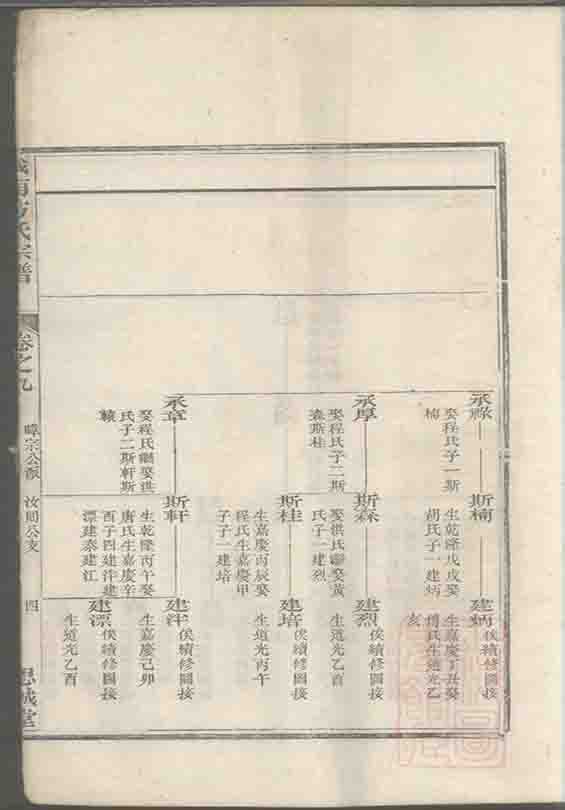 承祿
娶程氏子一斯
楠
斯楠
生乾隆戊戌娶
胡氏子一建炳
建炳
俟續修圖接
生嘉慶丁丑娶
傅氏生道光乙
亥
承厚
娶程氏子二斯
森斯桂
斯森
娶洪氏繼娶黃
氏子一建烈
建烈
俟續修圖接
生道光乙酉
斯桂
生嘉慶丙辰娶
程氏生嘉慶甲
子子一建培
建培
俟續修圖接
生道光丙午
承章
娶程氏繼娶洪
氏子二斯軒斯
轅
斯軒
生乾隆丙午娶
唐氏生嘉慶辛
酉子四建泮建
漂建泰建江
建泮
俟續修圖接
生嘉慶己卯
建漂
俟續修圖接
生道光乙酉
南方氏宗譜
卷之九
暐宗公派 汝周公支
四
思誠堂